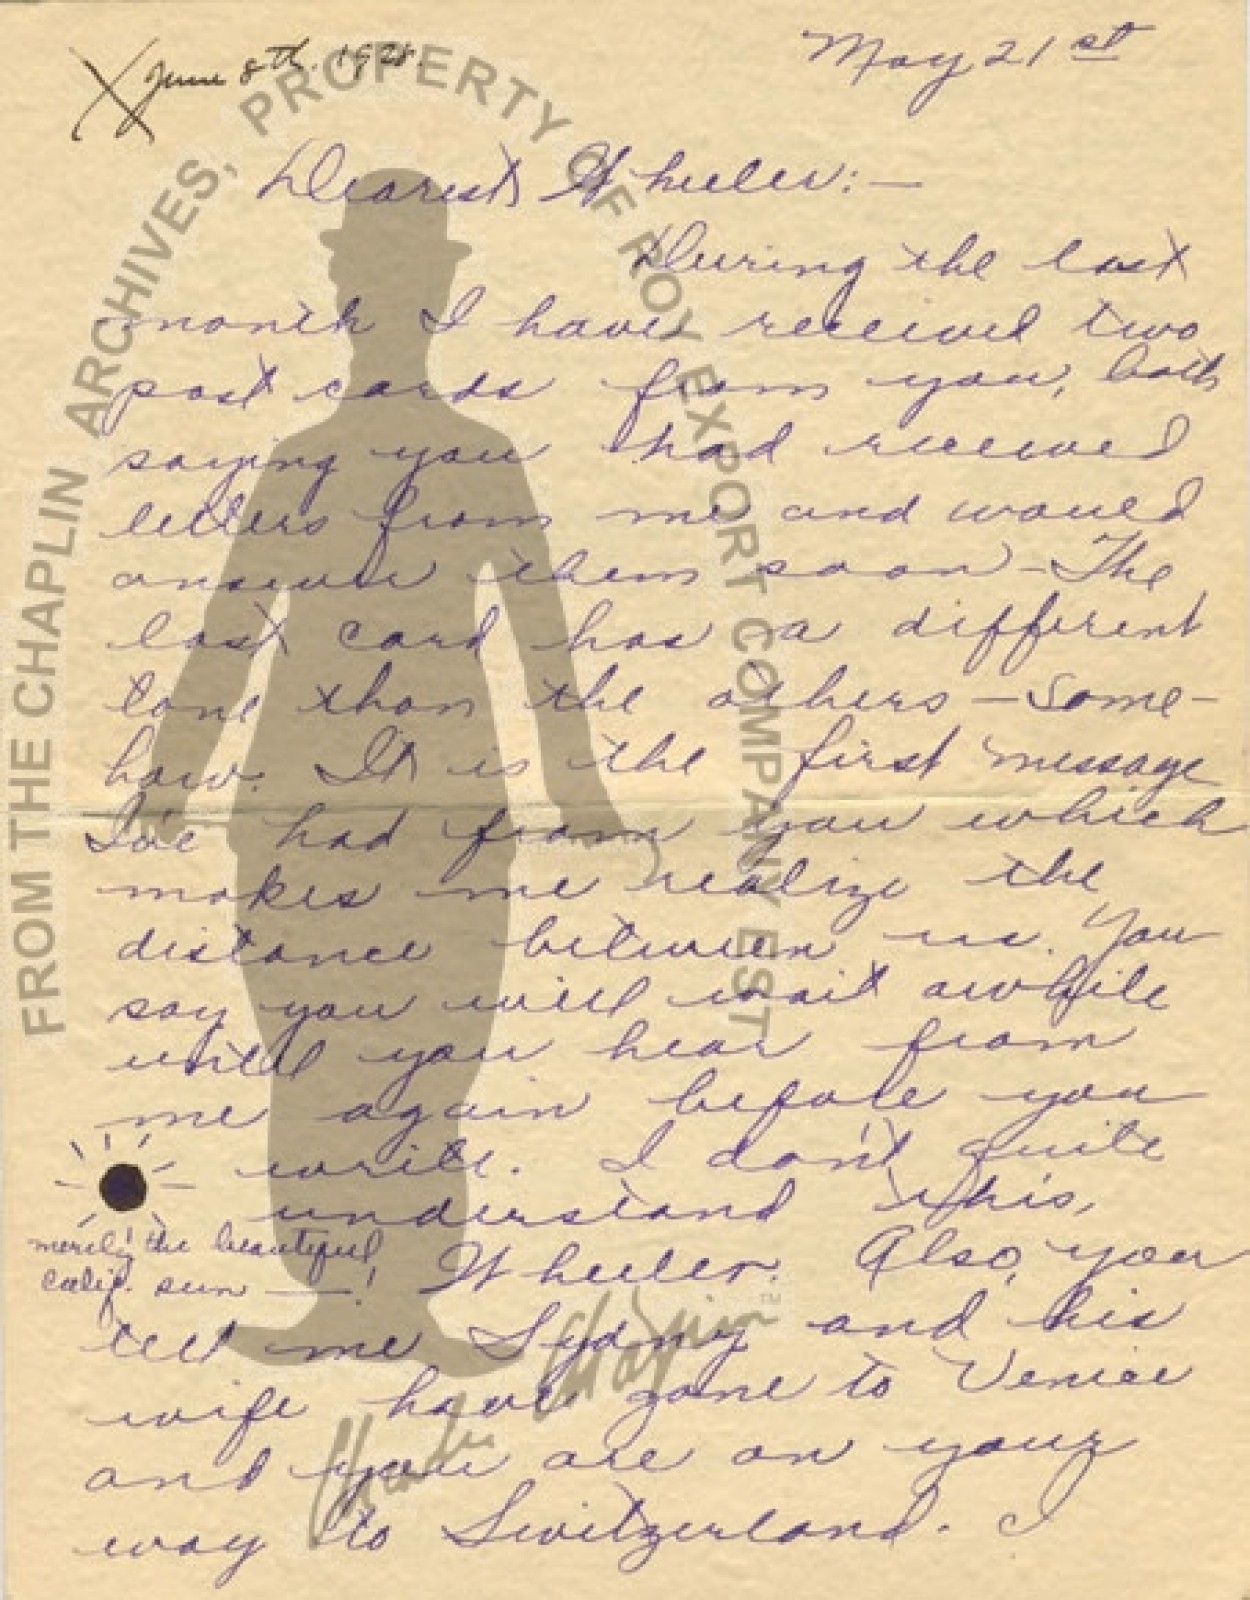 X June 8th. 1928
May 21st
Dearest Wheeler:—
During the last
month I have received two
post cards from you, both
saying you had received
letters from me and would
answer them soon — The
last card has a different
tone than the others — some-
how. It is the first message
I've had from you which
makes me realize the
distance between us. You
say you will wait awhile
until you hear from
me again before you
write. I don't quite
understand this,
merely the beautiful
Calif. sun —!
Wheeler. Also, you
tell me Sydney and his
wife have gone to Venice
and you are on your
way to Switzerland. I
FROM THE CHAPLIN ARCHIVES, PROPERTY OF ROY EXPORT COMPANY EST
Charles Chaplin™